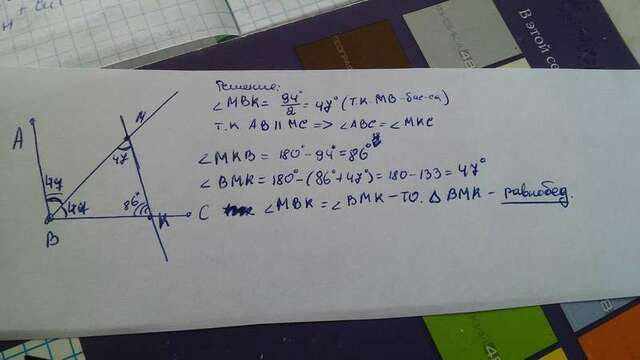 В этой се
Решение:
∠MBK = 94°/2 = 47° (т.к. MB - бис-са)
т.к AB || MC => ∠ABC = ∠MKC
∠MKB = 180° - 94° = 86°
∠BMK = 180° - (86° + 47°) = 180 - 133 = 47°
∠MBK = ∠BMK - ТО. △ BMK - равнобед.
A
M
47
47
86°
B
K
C